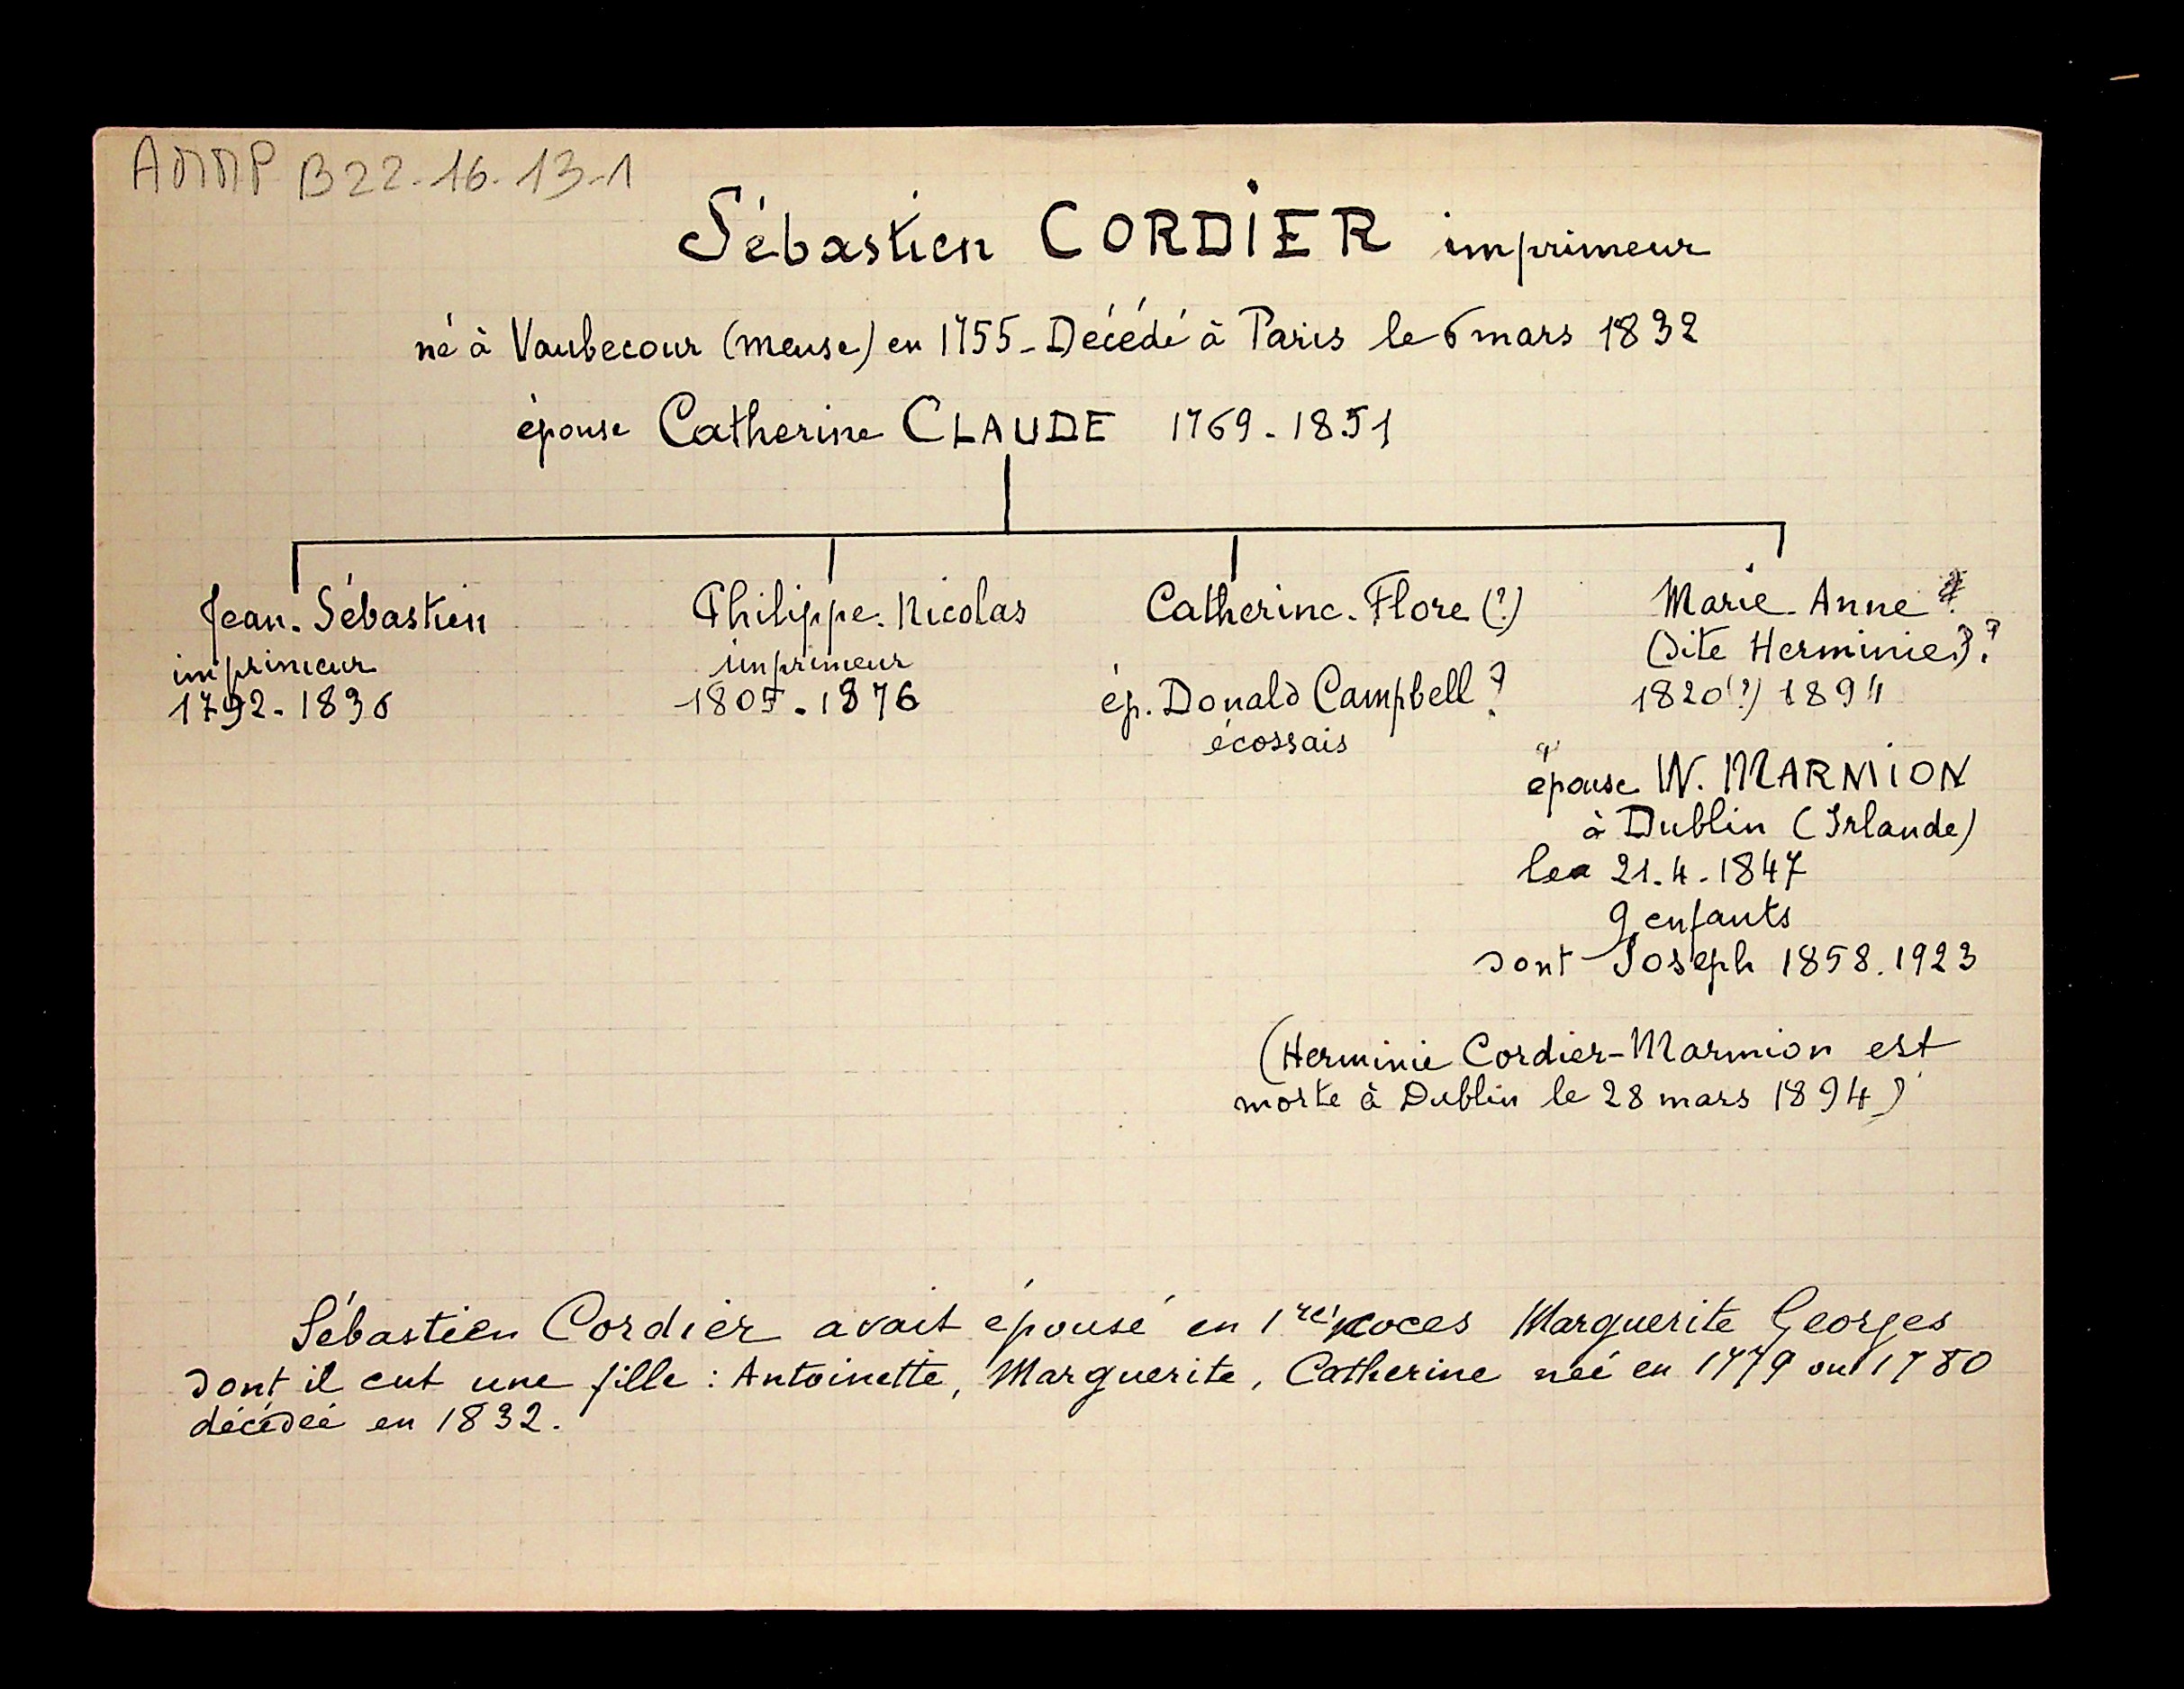 AMMP B22-16-13-1
Sébastien CORDIER imprimeur
né à Vaubecour (Meuse) en 1755 - Décédé à Paris le 6 mars 1832
épouse Catherine CLAUDE 1769-1851
Jean-Sébastien
imprimeur
1792-1836
Philippe-Nicolas
imprimeur
1805-1876
Catherine-Flore (?)
ép. Donald Campbell ?
écossais
Marie-Anne
(dite Herminie) ?
1820 (?) 1894
épouse W. MARMION
à Dublin (Irlande)
le 21.4.1847
9 enfants
dont Joseph 1858.1923
(Herminie Cordier-Marmion est
morte à Dublin le 28 mars 1894)
Sébastien Cordier avait épousé en 1re noces Marguerite Georges
dont il eut une fille : Antoinette, Marguerite, Catherine née en 1779 ou 1780
décédée en 1832.